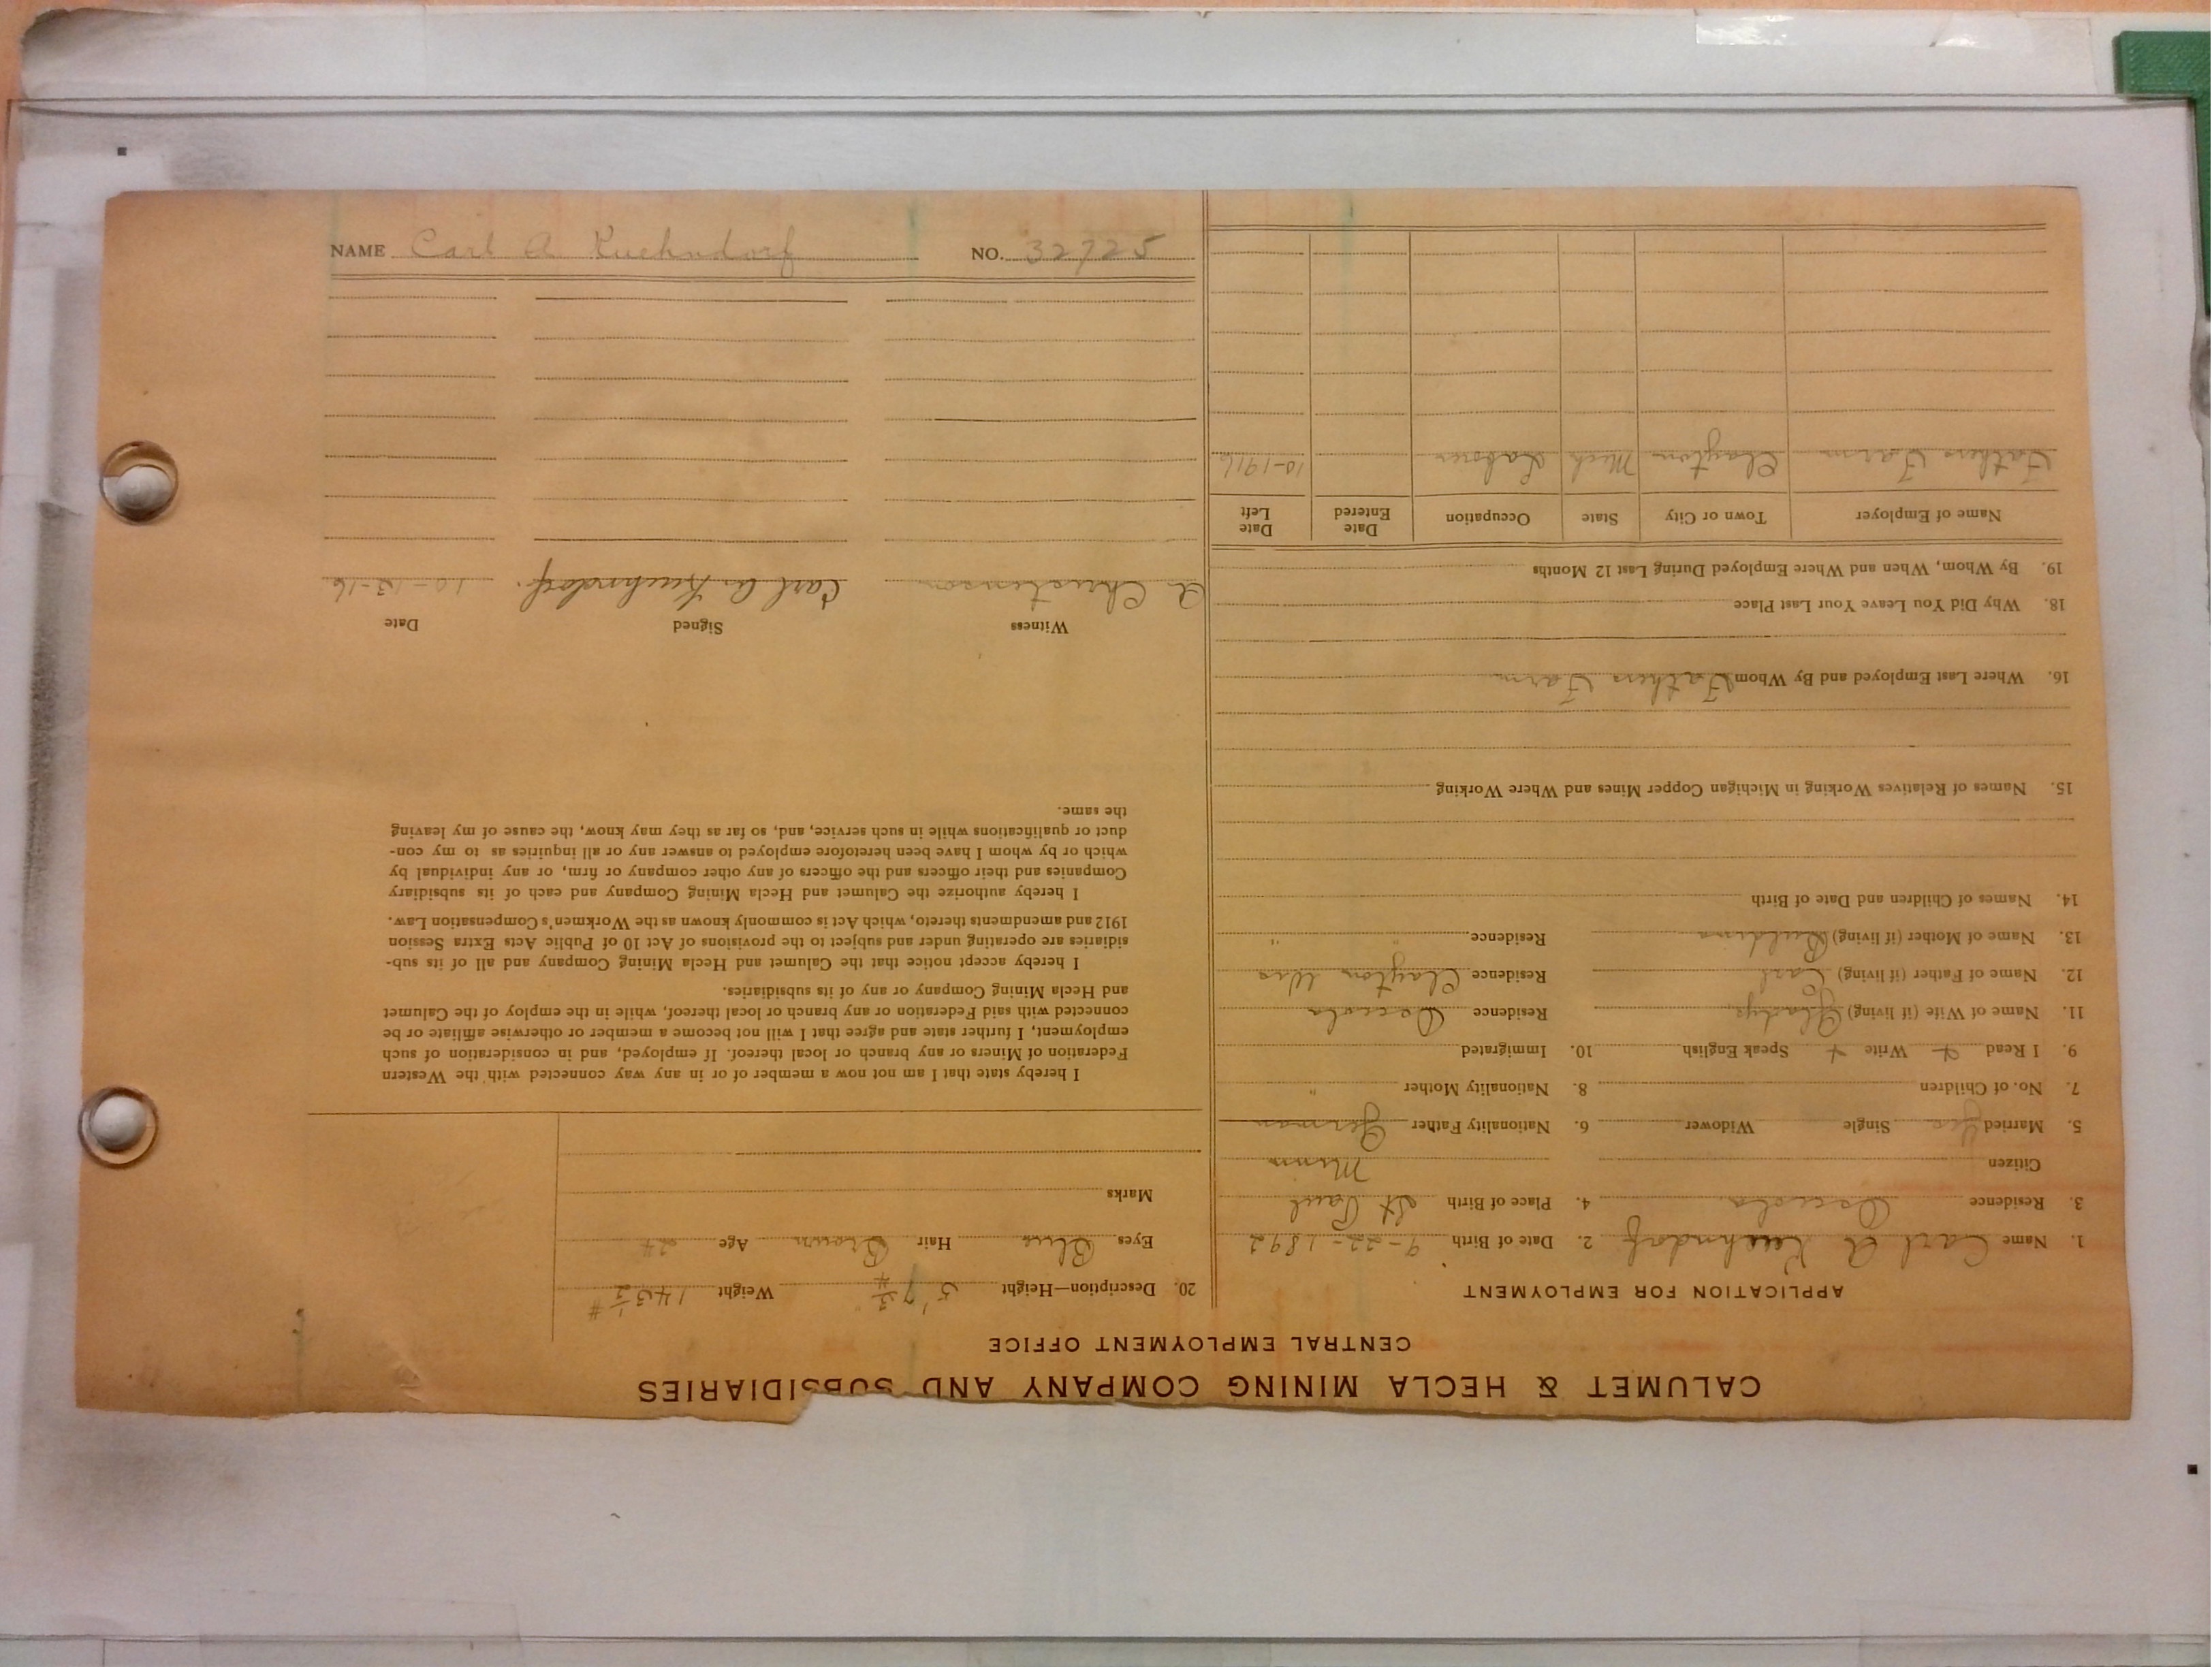 CALUMET & HECLA MINING COMPANY AND SUBSIDIARIES
CENTRAL EMPLOYMENT OFFICE
APPLICATION FOR EMPLOYMENT
1. Name Carl A Kuehndorf 2. Date of Birth 9-22-1892
3. Residence Osceola 4. Place of Birth St Paul
Citizen Minn
5. Married Yes Single Widower 6. Nationality Father German
7. No. of Children 8. Nationality Mother "
9. I Read + Write + Speak English 10. Immigrated
11. Name of Wife (if living) Gladys Residence Osceola
12. Name of Father (if living) Carl Residence Clayton Wis
13. Name of Mother (if living) Residence " "
14. Names of Children and Date of Birth
15. Names of Relatives Working in Michigan Copper Mines and Where Working
16. Where Last Employed and By Whom Fathers Farm
18. Why Did You Leave Your Last Place
19. By Whom, When and Where Employed During Last 12 Months
Name of Employer Town or City State Occupation Date Entered Date Left
Fathers Farm Clayton Mich Laborer 10-1916
20. Description—Height 5' 7 3/4" Weight 143 1/2 #
Eyes Blue Hair Brown Age 24
Marks
I hereby state that I am not now a member of or in any way connected with the Western
Federation of Miners or any branch or local thereof. If employed, and in consideration of such
employment, I further state and agree that I will not become a member or otherwise affiliate or be
connected with said Federation or any branch or local thereof, while in the employ of the Calumet
and Hecla Mining Company or any of its subsidiaries.
I hereby accept notice that the Calumet and Hecla Mining Company and all of its sub-
sidiaries are operating under and subject to the provisions of Act 10 of Public Acts Extra Session
1912 and amendments thereto, which Act is commonly known as the Workmen's Compensation Law.
I hereby authorize the Calumet and Hecla Mining Company and each of its subsidiary
Companies and their officers and the officers of any other company or firm, or any individual by
which or by whom I have been heretofore employed to answer any or all inquiries as to my con-
duct or qualifications while in such service, and, so far as they may know, the cause of my leaving
the same.
Witness Signed Date
A Christenson Carl A. Kuehndorf. 10-13-16
NAME Carl A Kuehndorf NO. 32725